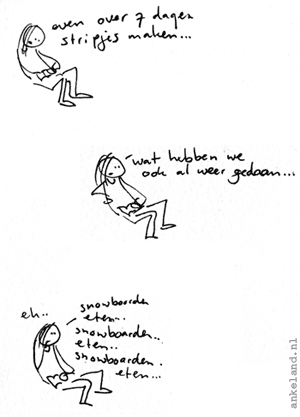 even over 7 dagen
stripjes maken...
wat hebben we
ook al weer gedaan...
eh..
snowboarden
eten..
snowboarden..
eten..
snowboarden.
eten...
ankeland.nl